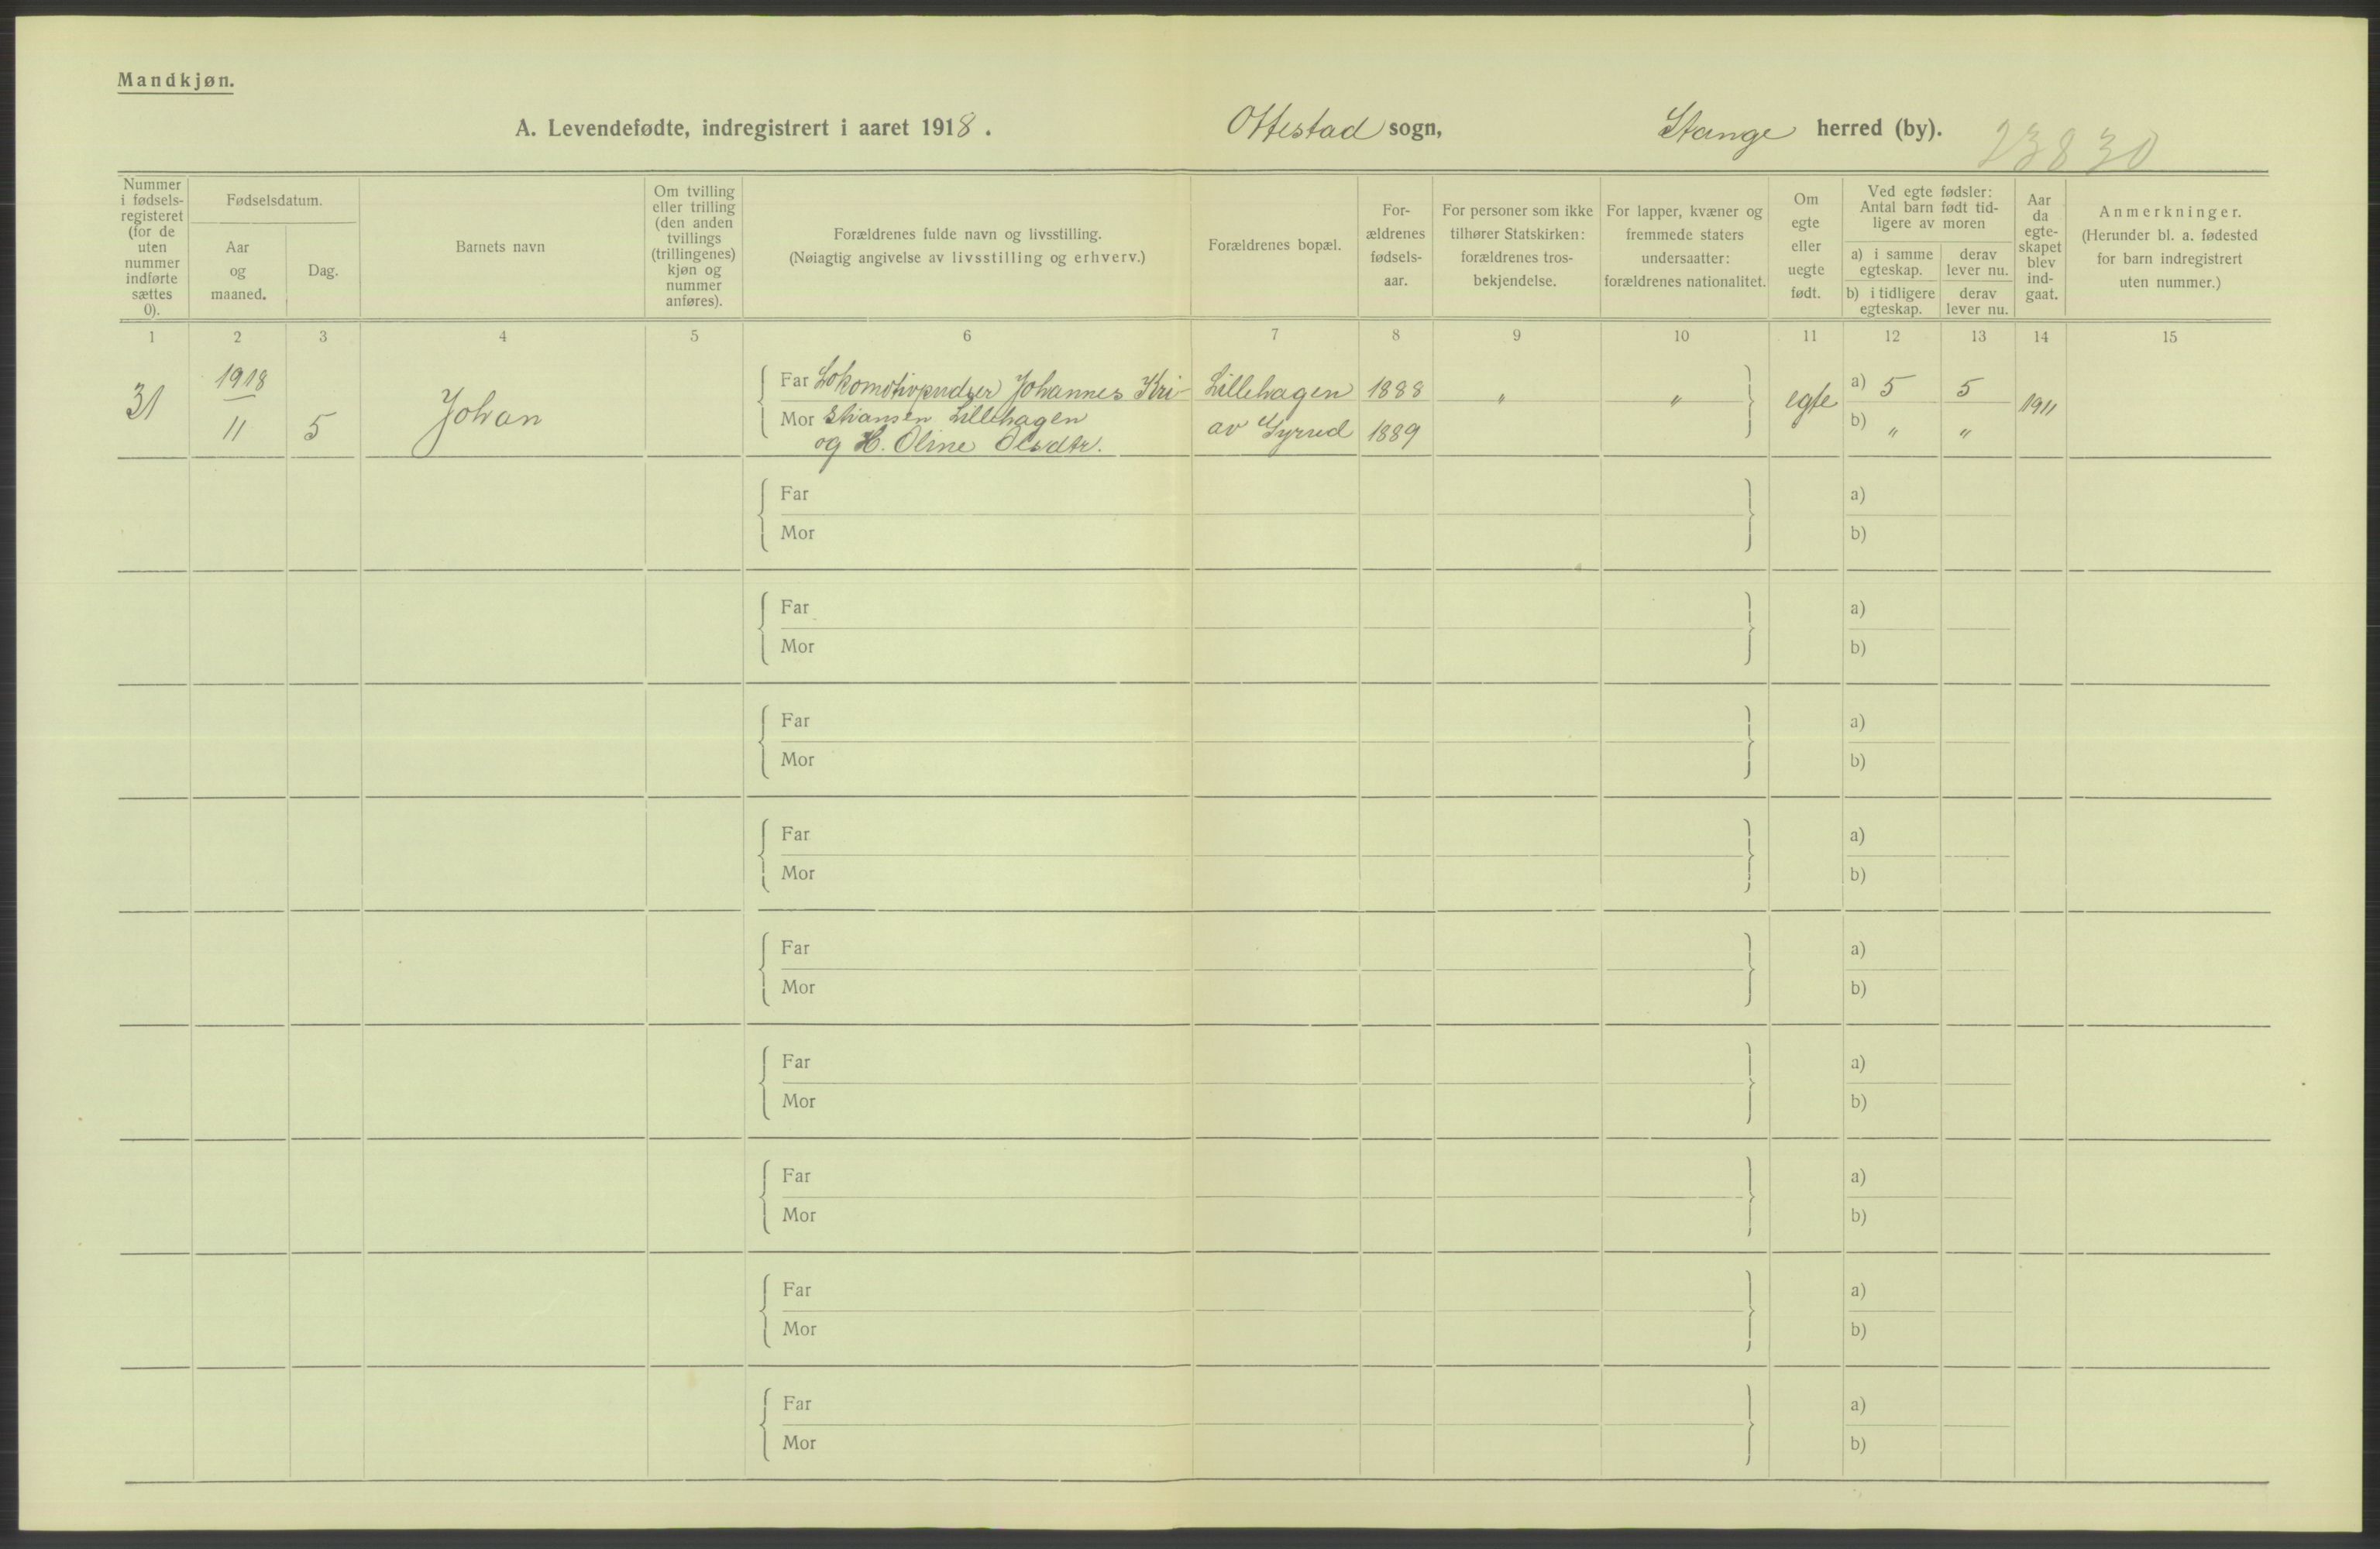 Mandkjøn.
A. Levendefødte, indregistrert i aaret 1918. Ottestad sogn, Stange herred (by). 23830
Nummer i fødsels- registeret (for de uten nummer indførte sættes 0).
Fødselsdatum.
Aar og maaned.
Dag.
Barnets navn
Om tvilling eller trilling (den anden tvillings (trillingenes) kjøn og nummer anføres).
Forældrenes fulde navn og livsstilling.
(Nøiagtig angivelse av livsstilling og erhverv.)
Forældrenes bopæl.
For- ældrenes fødsels- aar.
For personer som ikke tilhører Statskirken: forældrenes tros- bekjendelse.
For lapper, kvæner og fremmede staters undersaatter: forældrenes nationalitet.
Om egte eller uegte født.
Ved egte fødsler: Antal barn født tid- ligere av moren
a) i samme egteskap.
derav lever nu.
b) i tidligere egteskap.
derav lever nu.
Aar da egte- skapet blev ind- gaat.
Anmerkninger.
(Herunder bl. a. fødested for barn indregistrert uten nummer.)
1 2 3 4 5 6 7 8 9 10 11 12 13 14 15
31 1918 11 5 Johan
Far Lokomotivpudser Johannes Kri- Lillehagen 1888 " " egte a) 5 5 1911
Mor stiansen Lillehagen
og H. Oline Olsdtr. av Gyrud 1889 b) " "
Far a)
Mor b)
Far a)
Mor b)
Far a)
Mor b)
Far a)
Mor b)
Far a)
Mor b)
Far a)
Mor b)
Far a)
Mor b)
Far a)
Mor b)
Far a)
Mor b)